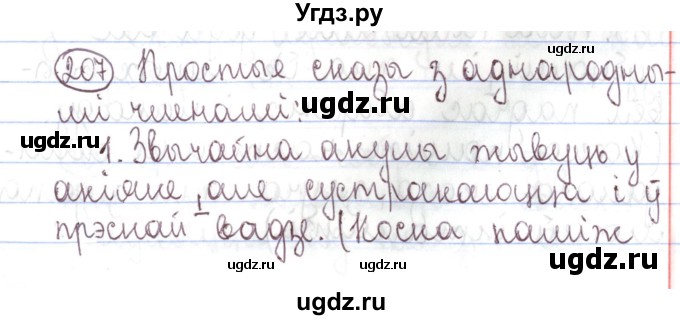 Угдз.ру
207 Простыя сказы з аднародны-
мі членамі:
ugdz.ru ugdz.ru
1. Звычайна акулы жывуць у
акіяне, але сустракаюцца і ў
прэснай вадзе. (Коска паміж
ugdz.ru ugdz.ru ugdz.ru
ugdz.ru